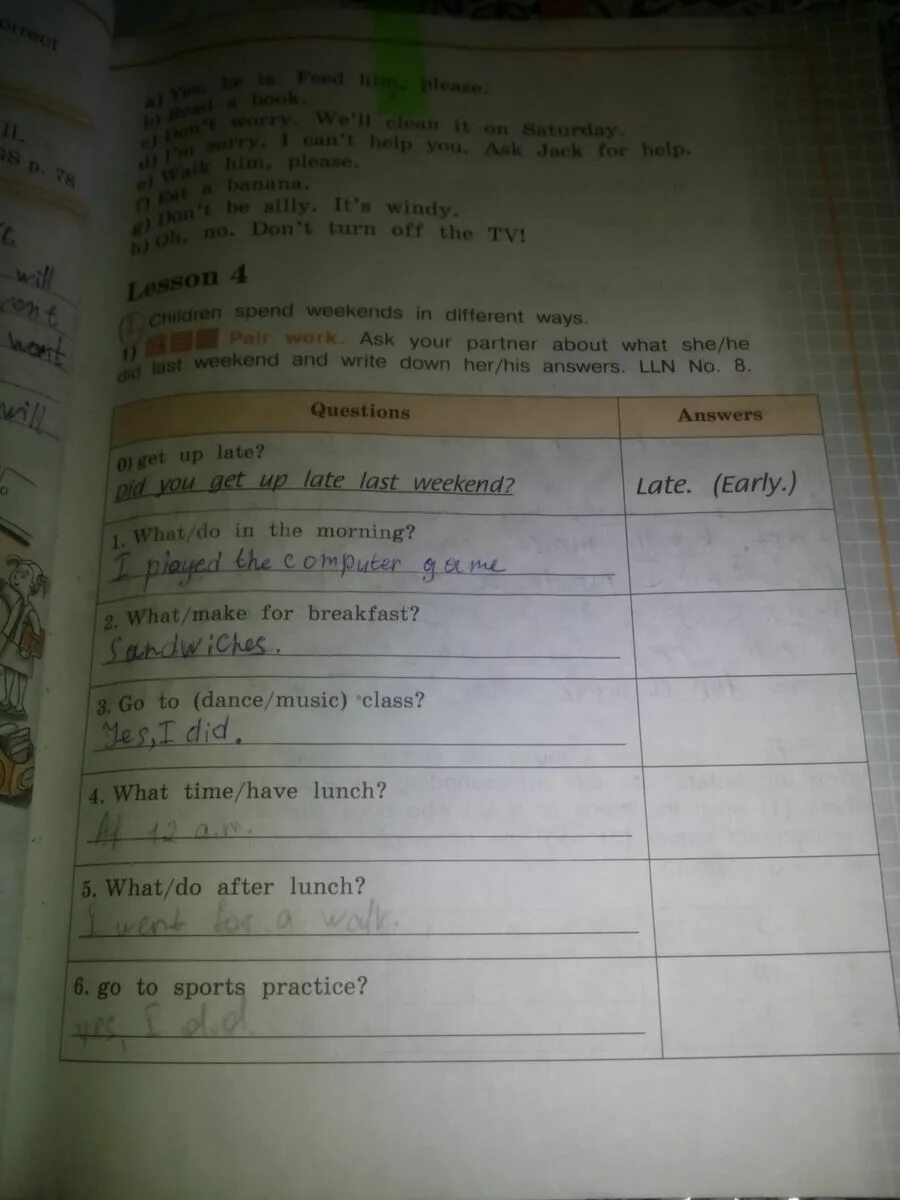 orrect
II.
GS p. 78
will
cont.
wont
will
a) Yes, he is. Feed him, please.
b) Read a book.
c) Don't worry. We'll clean it on Saturday.
d) I'm sorry, I can't help you. Ask Jack for help.
e) Walk him, please.
f) Eat a banana.
g) Don't be silly. It's windy.
h) Oh, no. Don't turn off the TV!
Lesson 4
Children spend weekends in different ways.
1) Pair work. Ask your partner about what she/he
did last weekend and write down her/his answers. LLN No. 8.
Questions Answers
0) get up late?
Did you get up late last weekend? Late. (Early.)
1. What/do in the morning?
I played the computer game
2. What/make for breakfast?
Sandwiches.
3. Go to (dance/music) class?
Yes, I did.
4. What time/have lunch?
At 12 a.m.
5. What/do after lunch?
I went for a walk.
6. go to sports practice?
yes, I did